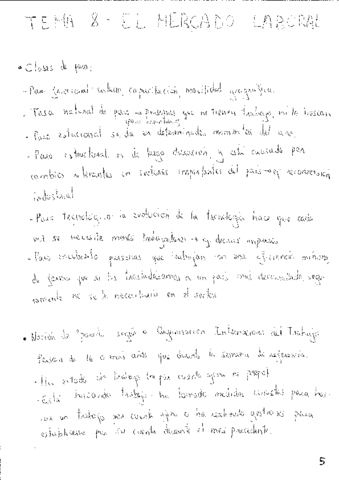 TEMA 8 - EL MERCADO LABORAL
• Clases de paro:
- Paro friccional: cultura, capacitación, movilidad geográfica.
- Tasa natural de paro → personas que no tienen trabajo, ni lo buscan
- Paro estacional se da en determinados momentos del año.
- Paro estructural es de larga duración, y está causado por
cambios relevantes en sectores importantes del país → ej reconversión
industrial
- Paro Tecnológico: la evolución de la tecnología hace que cada
vez se necesite menos trabajadores → ej
- Paro encubierto personas que trabajan con una eficiencia mínima
de forma que si los trasladásemos a un país más desarrollado, segu-
ramente no se le necesitaría en el sector
• Noción de "parado" según la Organización Internacional del Trabajo
Persona de 16 o más años que durante la semana de referencia.
- Ha estado sin trabajo por cuenta ajena ni propia
- Está buscando trabajo ha tomado medidas concretas para bus-
car un trabajo por cuenta ajena o ha realizado gestiones para
establecerse por su cuenta durante el mes precedente.
5